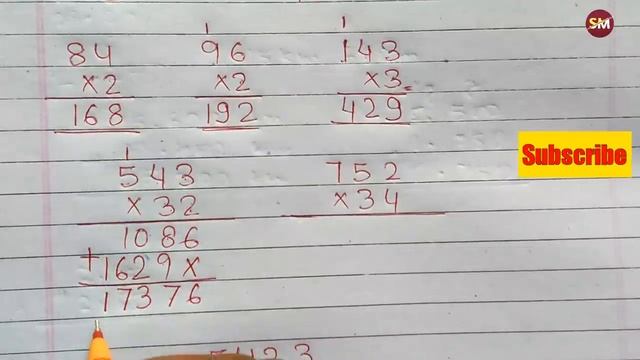 SM
1 1
84 96 143
×2 ×2 ×3
168 192 429
Subscribe
1
543 752
×32 ×34
1086
+1629×
17376
5423